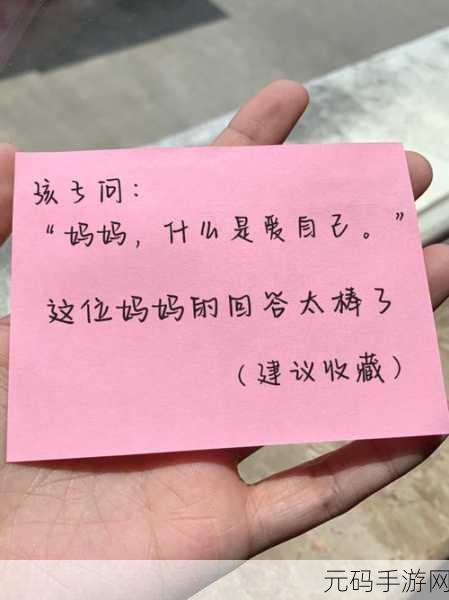 孩子问：
“妈妈，什么是爱自己。”
这位妈妈的回答太棒了
（建议收藏）
元码手游网